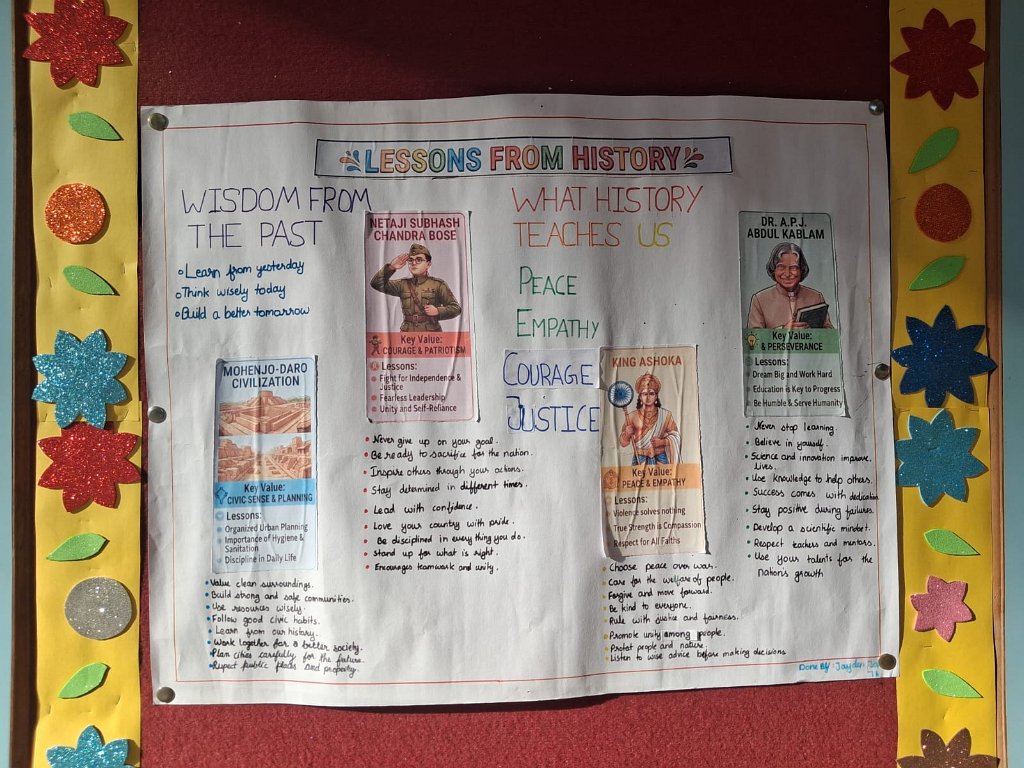 LESSONS FROM HISTORY
WISDOM FROM
THE PAST
Learn from yesterday
Think wisely today
Build a better tomorrow
MOHENJO-DARO
CIVILIZATION
Key Value:
CIVIC SENSE & PLANNING
Lessons:
Organized Urban Planning
Importance of Hygiene &
Sanitation
Discipline in Daily Life
Value clean surroundings.
Build strong and safe communities.
Use resources wisely.
Follow good civic habits.
Learn from our history.
Work together for a better society.
Plan cities carefully for the future.
Respect public places and property.
NETAJI SUBHASH
CHANDRA BOSE
Key Value:
COURAGE & PATRIOTISM
Lessons:
Fight for Independence &
Justice
Fearless Leadership
Unity and Self-Reliance
Never give up on your goal.
Be ready to sacrifice for the nation.
Inspire others through your actions.
Stay determined in different times.
Lead with confidence.
Love your country with pride.
Be disciplined in every thing you do.
Stand up for what is right.
Encourages teamwork and unity.
WHAT HISTORY
TEACHES US
PEACE
EMPATHY
COURAGE
JUSTICE
KING ASHOKA
Key Value:
PEACE & EMPATHY
Lessons:
Violence solves nothing
True Strength is Compassion
Respect for All Faiths
Choose peace over war.
Care for the welfare of people.
Forgive and move forward.
Be kind to everyone.
Rule with justice and fairness.
Promote unity among people.
Protet people and nature.
Listen to wise advice before making decisions
DR. A.P.J.
ABDUL KABLAM
Key Value:
& PERSEVERANCE
Lessons:
Dream Big and Work Hard
Education is Key to Progress
Be Humble & Serve Humanity
Never stop learning.
Believe in yourself.
Science and innovation improve
lives.
Use knowledge to help others.
Success comes with dedication
Stay positive during failures.
Develop a scientific mindset.
Respect teachers and mentors.
Use your talents for the
Nations growth
Done By: Jayden